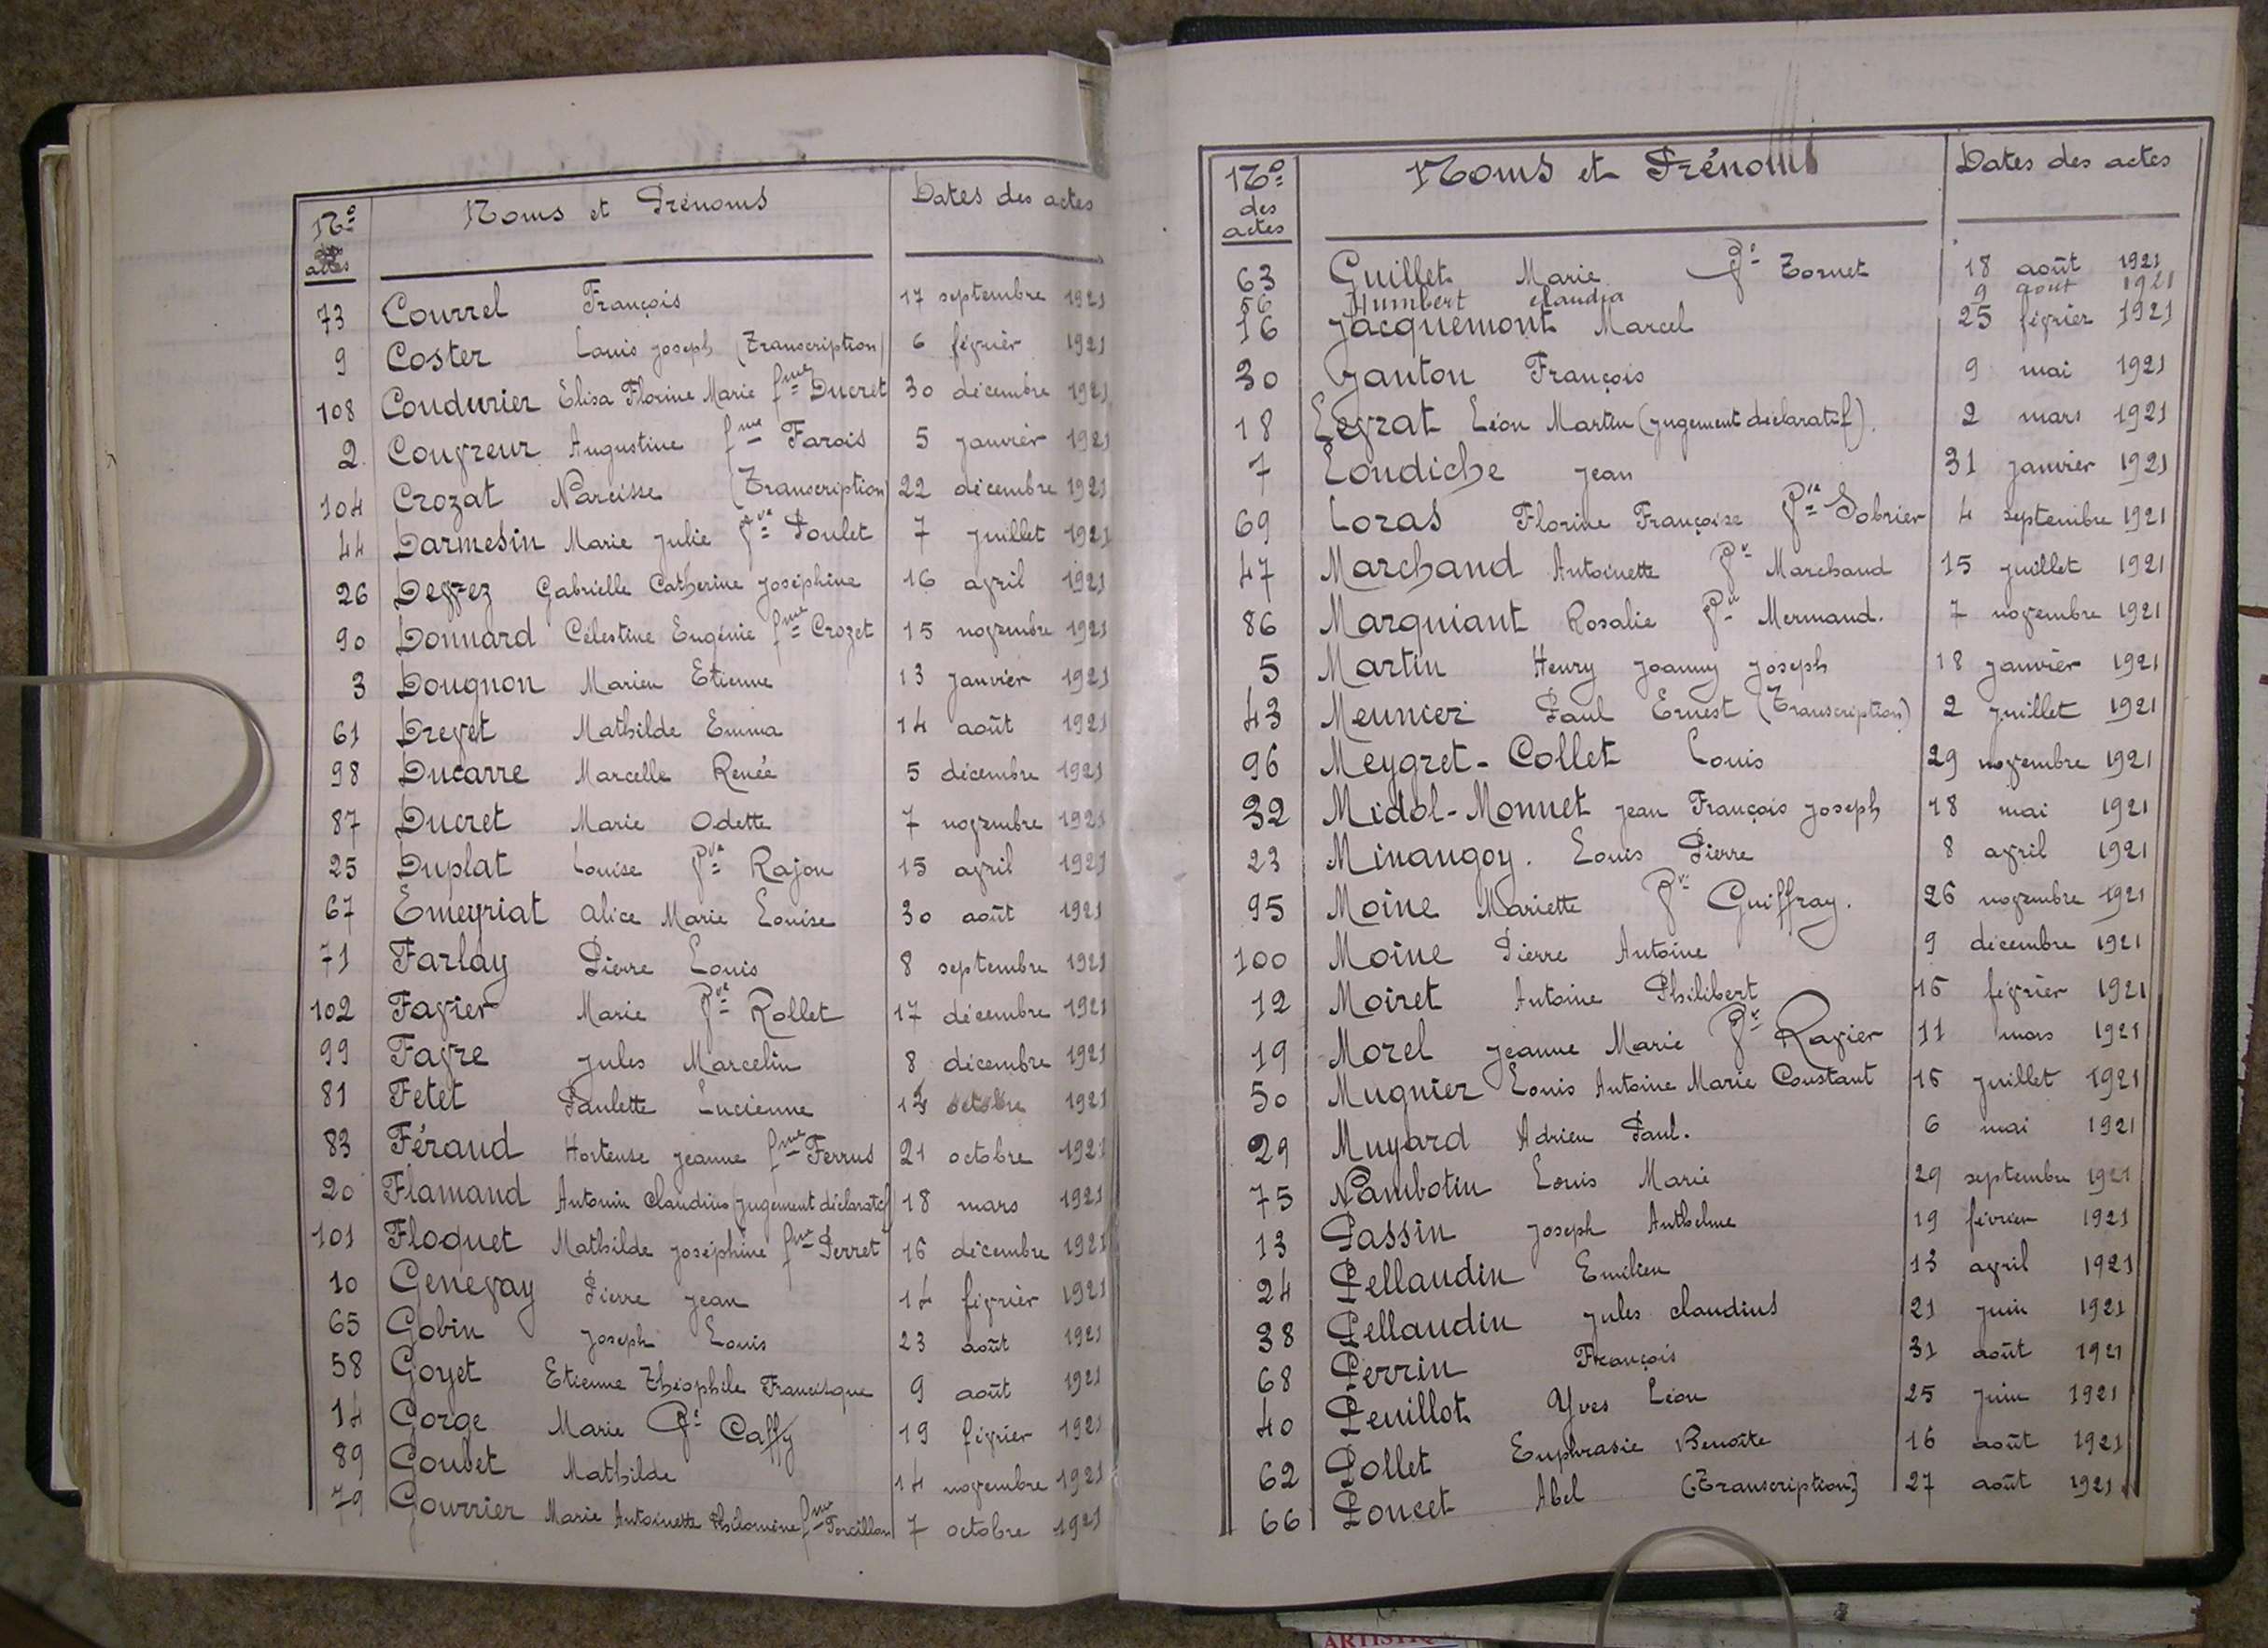 Nº des actes Noms et Prénoms Dates des actes
73 Courrel François 17 septembre 1921
9 Coster Louis Joseph (Transcription) 6 février 1921
108 Coudurier Elisa Florine Marie fme Ducret 30 décembre 1921
2 Couvreur Augustine fme Farois 5 janvier 1921
104 Crozat Narcisse (Transcription) 22 décembre 1921
44 Darmesin Marie Julie Vve Poulet 7 juillet 1921
26 Devrez Gabrielle Catherine Joséphine 16 avril 1921
90 Donnard Célestine Eugénie fme Crozet 15 novembre 1921
3 Dougnon Marien Etienne 13 janvier 1921
61 Drevet Mathilde Emma 14 août 1921
98 Ducarre Marcelle Renée 5 décembre 1921
87 Ducret Marie Odette 7 novembre 1921
25 Duplat Louise Vve Rajon 15 avril 1921
67 Emeyriat Alice Marie Louise 30 août 1921
71 Farlay Pierre Louis 8 septembre 1921
102 Favier Marie Vve Rollet 17 décembre 1921
99 Favre Jules Marcelin 8 décembre 1921
81 Fetet Paulette Lucienne octobre 1921
83 Féraud Hortense Jeanne fme Ferrus 21 octobre 1921
20 Flamand Antonin Claudius (jugement déclaratif) 18 mars 1921
101 Floquet Mathilde Joséphine fme Perret 16 décembre 1921
10 Genevay Pierre Jean 14 février 1921
65 Gobin Joseph Louis 23 août 1921
58 Goyet Etienne Théophile Francisque 9 août 1921
14 Gorge Marie Vve Caffy 19 février 1921
89 Goubet Mathilde 14 novembre 1921
79 Gourrier Marie Antoinette Philomène fme Forcillon 7 octobre 1921
Nº des actes Noms et Prénoms Dates des actes
63 Guillet Marie Vve Tornet 18 août 1921
56 Humbert Claudia 9 août 1921
16 Jacquemont Marcel 25 février 1921
30 Janton François 9 mai 1921
18 Levrat Léon Martin (jugement déclaratif). 2 mars 1921
7 Loudiche Jean 31 janvier 1921
69 Loras Florine Françoise Vve Sobrier 4 septembre 1921
47 Marchand Antoinette Vve Marchand 15 juillet 1921
86 Marquiant Rosalie Vve Mermand. 7 novembre 1921
5 Martin Henry Joanny Joseph 18 janvier 1921
43 Meunier Paul Ernest (Transcription) 2 juillet 1921
96 Meygret-Collet Louis 29 novembre 1921
32 Midol-Monnet Jean François Joseph 18 mai 1921
23 Minangoy. Louis Pierre 8 avril 1921
95 Moine Mariette Vve Guiffray. 26 novembre 1921
100 Moine Pierre Antoine 9 décembre 1921
12 Moiret Antoine Philibert 16 février 1921
19 Morel Jeanne Marie Vve Ravier 11 mars 1921
50 Mugnier Louis Antoine Marie Constant 16 juillet 1921
29 Muyard Adrien Paul. 6 mai 1921
75 Nambotin Louis Marie 29 septembre 1921
13 Passin Joseph Anthelme 19 février 1921
24 Pellaudin Emilien 13 avril 1921
38 Pellaudin Jules Claudius 21 juin 1921
68 Perrin François 31 août 1921
40 Peuillot Yves Léon 25 juin 1921
62 Pollet Euphrasie Benoîte 16 août 1921
66 Poncet Abel (Transcription) 27 août 1921